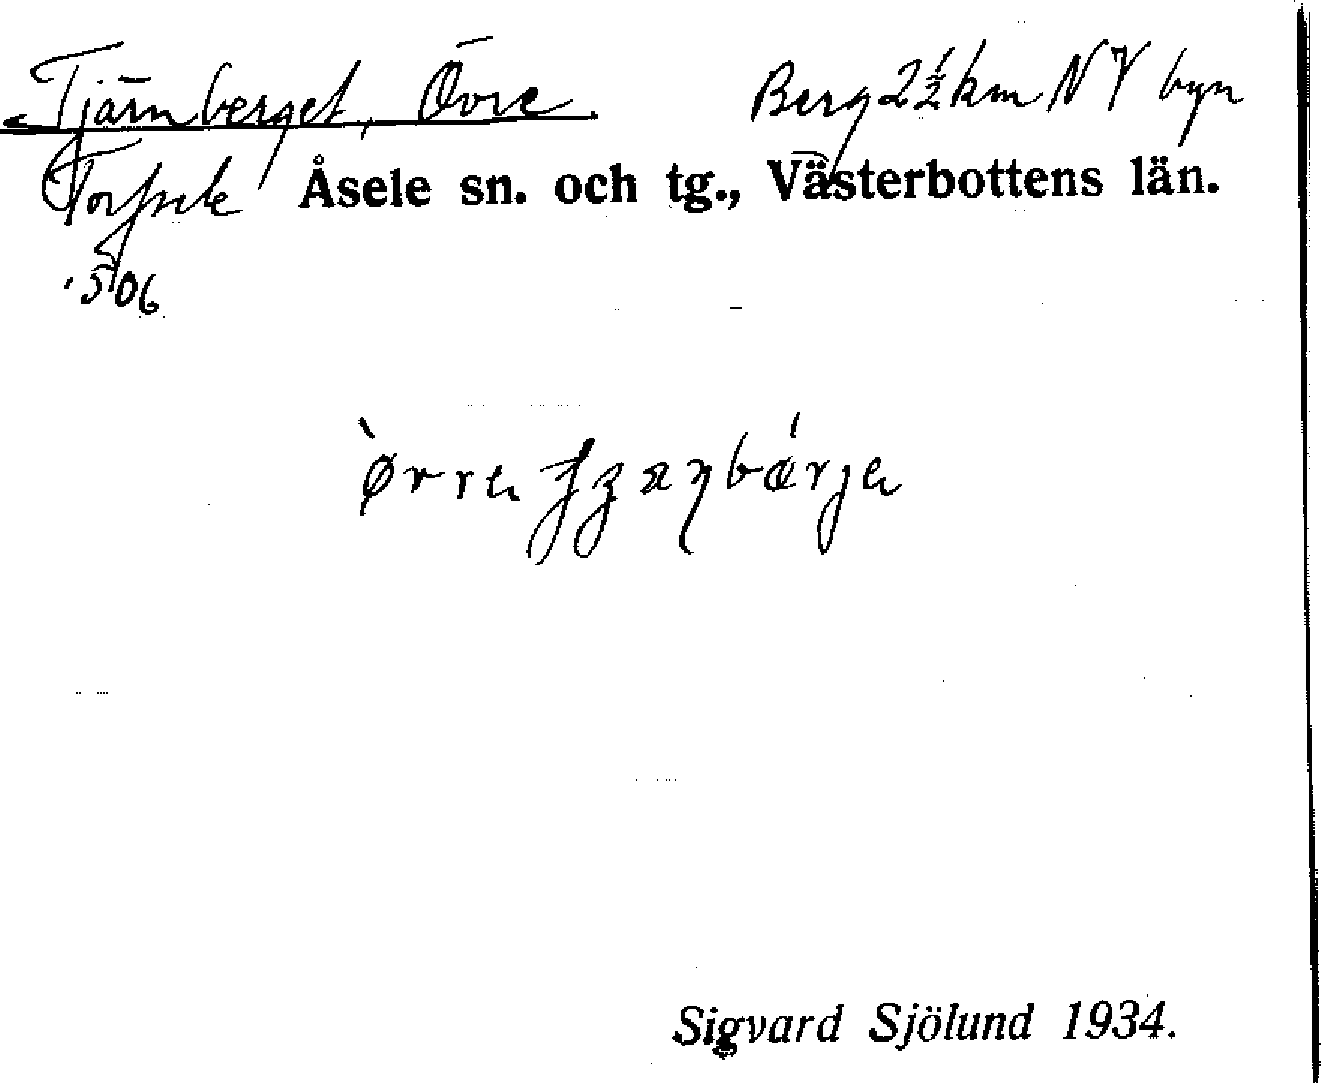 Tjärnberget, Övre. Berg 2½ km NV byn
Torfsele Åsele sn. och tg., Västerbottens län.
506
Sigvard Sjölund 1934.